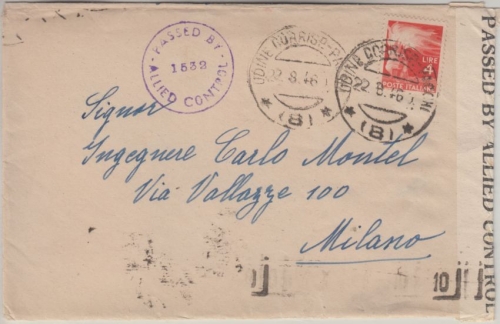 PASSED BY
1532
ALLIED CONTROL
UDINE CORRISP-P
22.8.46
(8)
UDINE CORRISP
22.8.46
(8)
LIRE
4
POSTE ITALIANE
Signor
Ingegnere Carlo Montel
Via Vallazze 100
Milano
10
PASSED BY ALLIED CONTROL